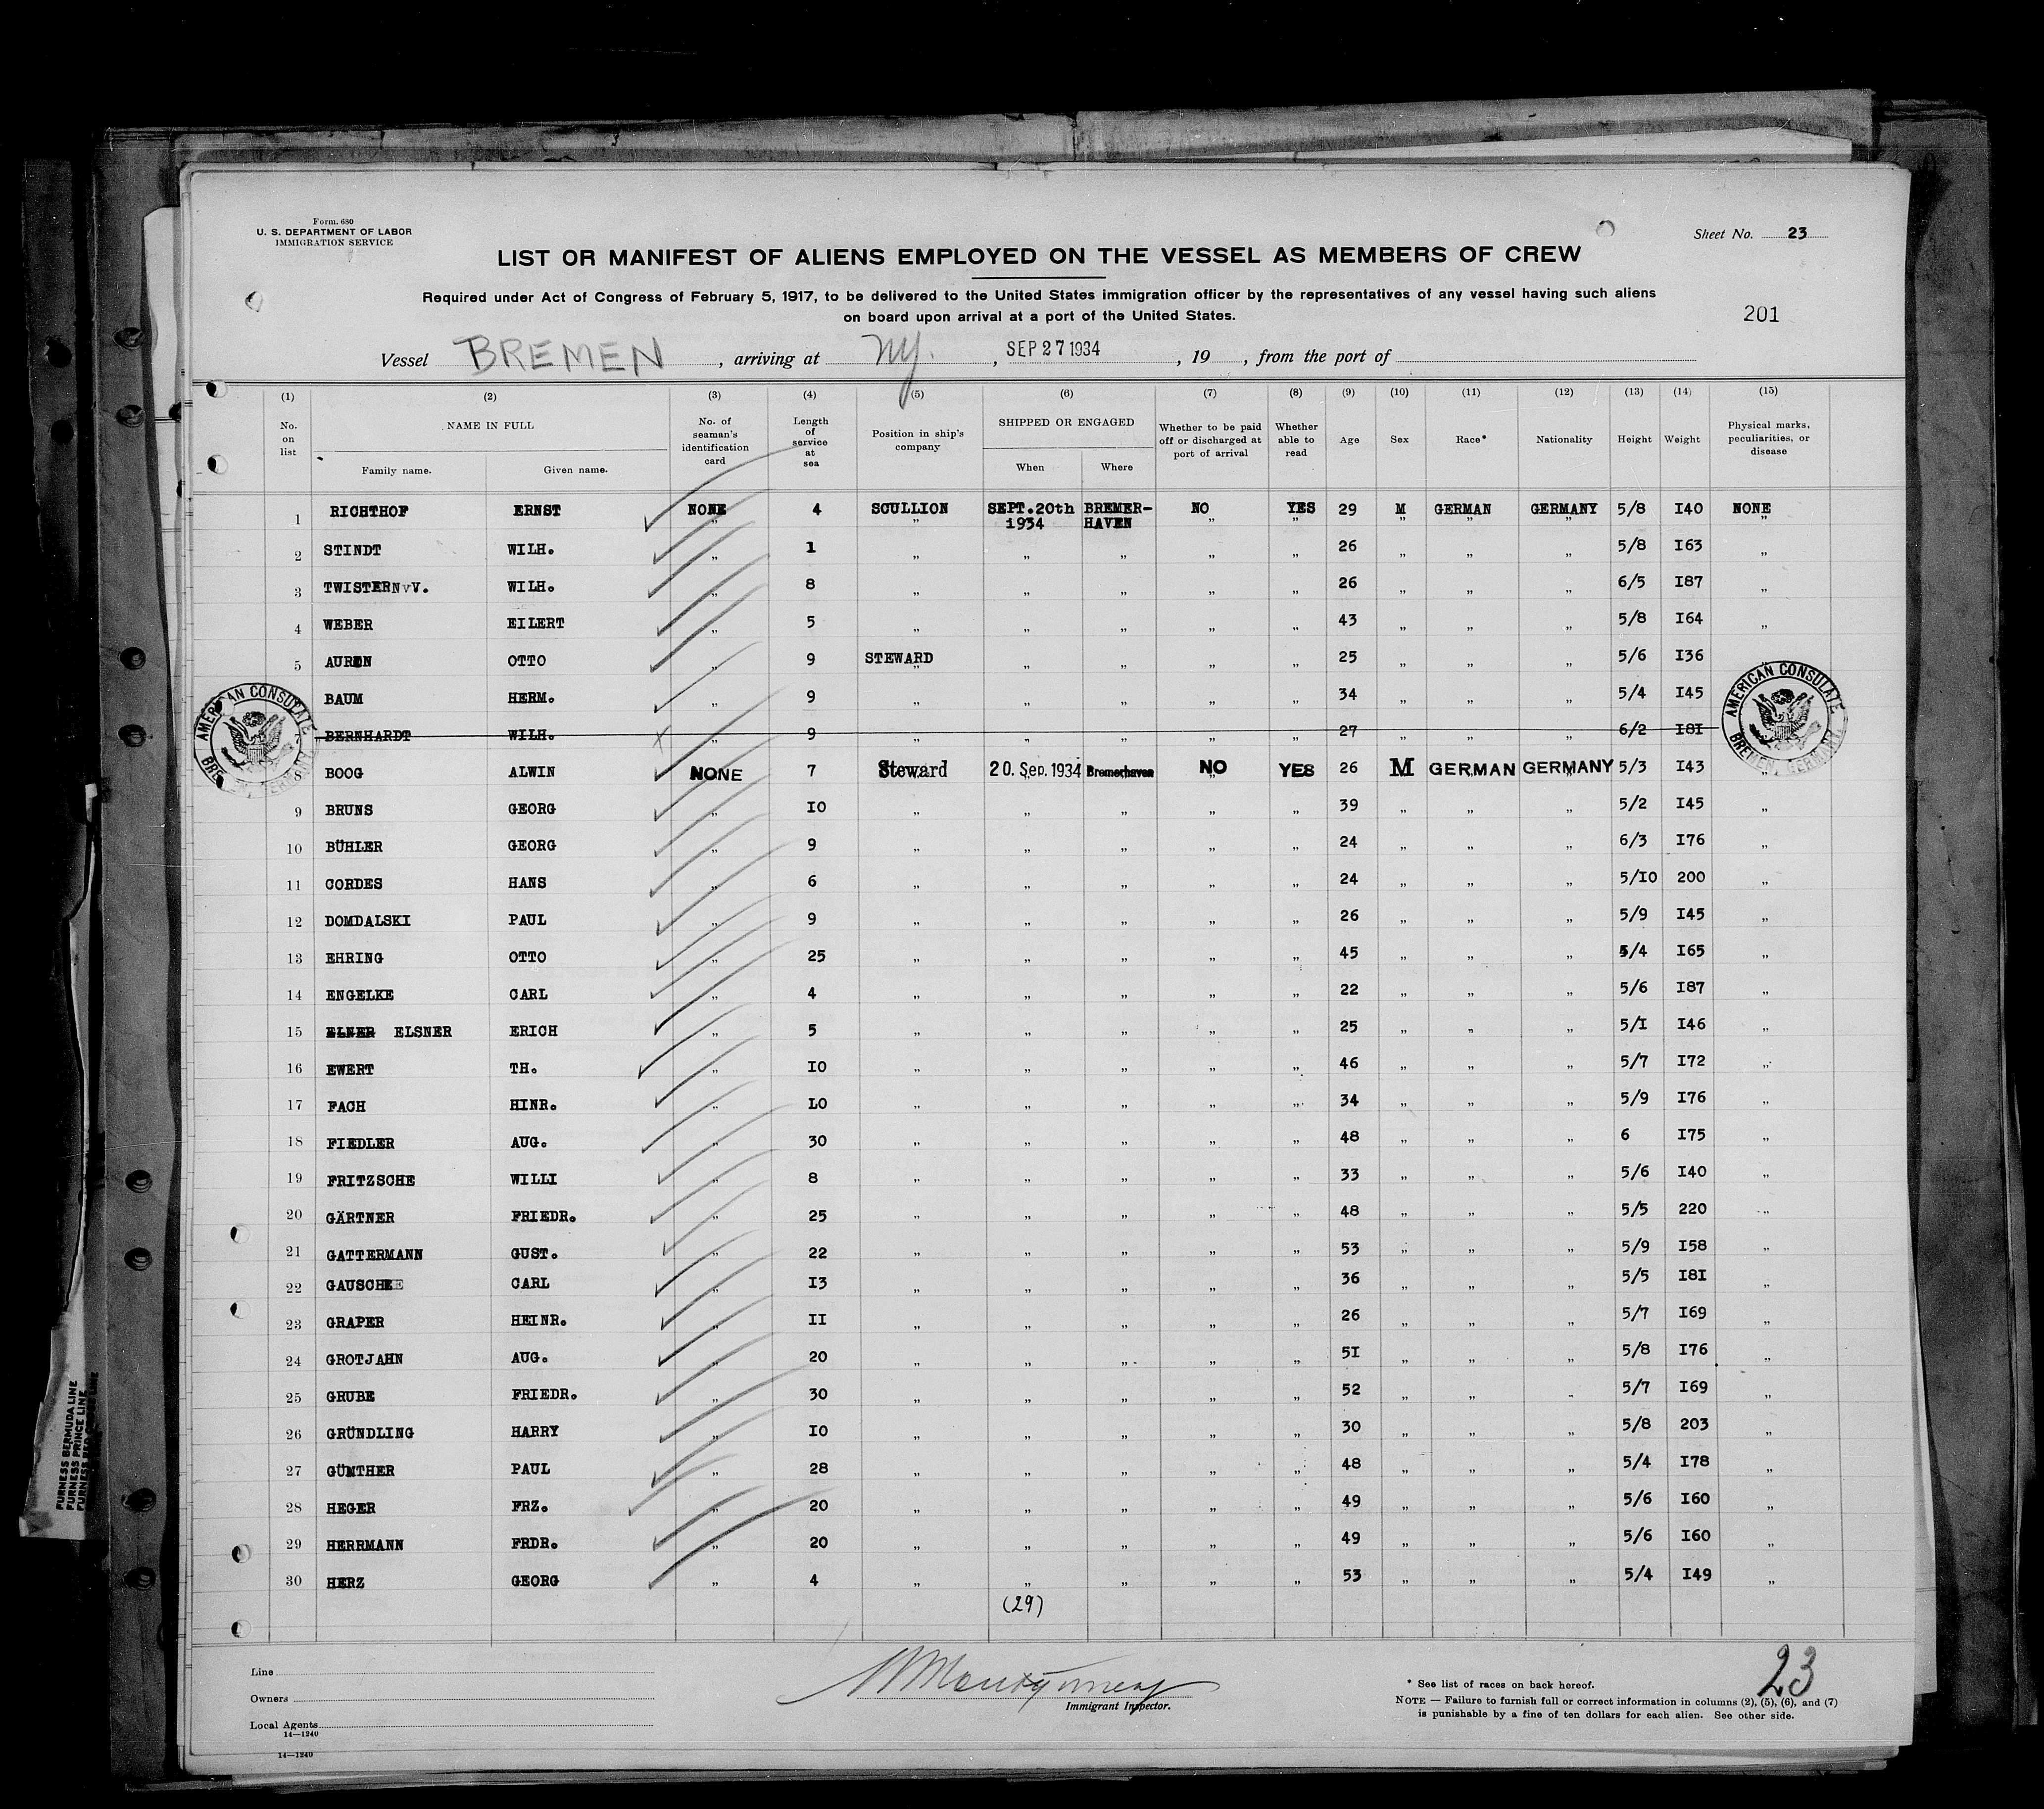 Form. 680
U. S. DEPARTMENT OF LABOR
IMMIGRATION SERVICE
Sheet No. 23
LIST OR MANIFEST OF ALIENS EMPLOYED ON THE VESSEL AS MEMBERS OF CREW
Required under Act of Congress of February 5, 1917, to be delivered to the United States immigration officer by the representatives of any vessel having such aliens
on board upon arrival at a port of the United States.
201
Vessel BREMEN, arriving at NY., SEP 27 1934, 19 , from the port of
(1) (2) (3) (4) (5) (6) (7) (8) (9) (10) (11) (12) (13) (14) (15)
No. on list NAME IN FULL Family name. Given name. No. of seaman's identification card Length of service at sea Position in ship's company SHIPPED OR ENGAGED When Where Whether to be paid off or discharged at port of arrival Whether able to read Age Sex Race* Nationality Height Weight Physical marks, peculiarities, or disease
1 RICHTHOF ERNST NONE 4 SCULLION SEPT.20th 1934 BREMER-HAVEN NO YES 29 M GERMAN GERMANY 5/8 I40 NONE
2 STINDT WILH. „ 1 „ „ „ „ „ 26 „ „ „ 5/8 I63 „
3 TWISTERN v V. WILH. „ 8 „ „ „ „ „ 26 „ „ „ 6/5 I87 „
4 WEBER EILERT „ 5 „ „ „ „ „ 43 „ „ „ 5/8 I64 „
5 AUREN OTTO „ 9 STEWARD „ „ „ „ 25 „ „ „ 5/6 I36 „
BAUM HERM. „ 9 „ „ „ „ „ 34 „ „ „ 5/4 I45
7 BERNHARDT WILH. „ 9 „ „ „ „ „ 27 „ „ „ 6/2 I8I
8 BOOG ALWIN NONE 7 Steward 20. Sep. 1934 Bremerhaven NO YES 26 M GERMAN GERMANY 5/3 I43 „
9 BRUNS GEORG „ IO „ „ „ „ „ 39 „ „ „ 5/2 I45 „
10 BÜHLER GEORG „ 9 „ „ „ „ „ 24 „ „ „ 6/3 I76 „
11 CORDES HANS „ 6 „ „ „ „ „ 24 „ „ „ 5/IO 200 „
12 DOMDALSKI PAUL „ 9 „ „ „ „ „ 26 „ „ „ 5/9 I45 „
13 EHRING OTTO „ 25 „ „ „ „ „ 45 „ „ „ 5/4 I65 „
14 ENGELKE CARL „ 4 „ „ „ „ „ 22 „ „ „ 5/6 I87 „
15 ELNER ELSNER ERICH „ 5 „ „ „ „ „ 25 „ „ „ 5/I I46 „
16 EWERT TH. „ IO „ „ „ „ „ 46 „ „ „ 5/7 I72 „
17 FACH HINR. „ LO „ „ „ „ „ 34 „ „ „ 5/9 I76 „
18 FIEDLER AUG. „ 30 „ „ „ „ „ 48 „ „ „ 6 I75 „
19 FRITZSCHE WILLI „ 8 „ „ „ „ „ 33 „ „ „ 5/6 I40 „
20 GÄRTNER FRIEDR. „ 25 „ „ „ „ „ 48 „ „ „ 5/5 220 „
21 GATTERMANN GUST. „ 22 „ „ „ „ „ 53 „ „ „ 5/9 I58 „
22 GAUSCHE CARL „ I3 „ „ „ „ „ 36 „ „ „ 5/5 I8I „
23 GRAPER HEINR. „ II „ „ „ „ „ 26 „ „ „ 5/7 I69 „
24 GROTJAHN AUG. „ 20 „ „ „ „ „ 5I „ „ „ 5/8 I76 „
25 GRUBE FRIEDR. „ 30 „ „ „ „ „ 52 „ „ „ 5/7 I69 „
26 GRÜNDLING HARRY „ IO „ „ „ „ „ 30 „ „ „ 5/8 203 „
27 GÜNTHER PAUL „ 28 „ „ „ „ „ 48 „ „ „ 5/4 I78 „
28 HEGER FRZ. „ 20 „ „ „ „ „ 49 „ „ „ 5/6 I60 „
29 HERRMANN FRDR. „ 20 „ „ „ „ „ 49 „ „ „ 5/6 I60 „
30 HERZ GEORG „ 4 „ „ „ „ „ 53 „ „ „ 5/4 I49 „
(29)
AMERICAN CONSULATE
BREMEN, GERMANY
AMERICAN CONSULATE
BREMEN, GERMANY
Line
Owners
Local Agents
14—1240
14—1240
Montgomery
Immigrant Inspector.
23
* See list of races on back hereof.
NOTE — Failure to furnish full or correct information in columns (2), (5), (6), and (7)
is punishable by a fine of ten dollars for each alien. See other side.
FURNESS BERMUDA LINE
FURNESS PRINCE LINE